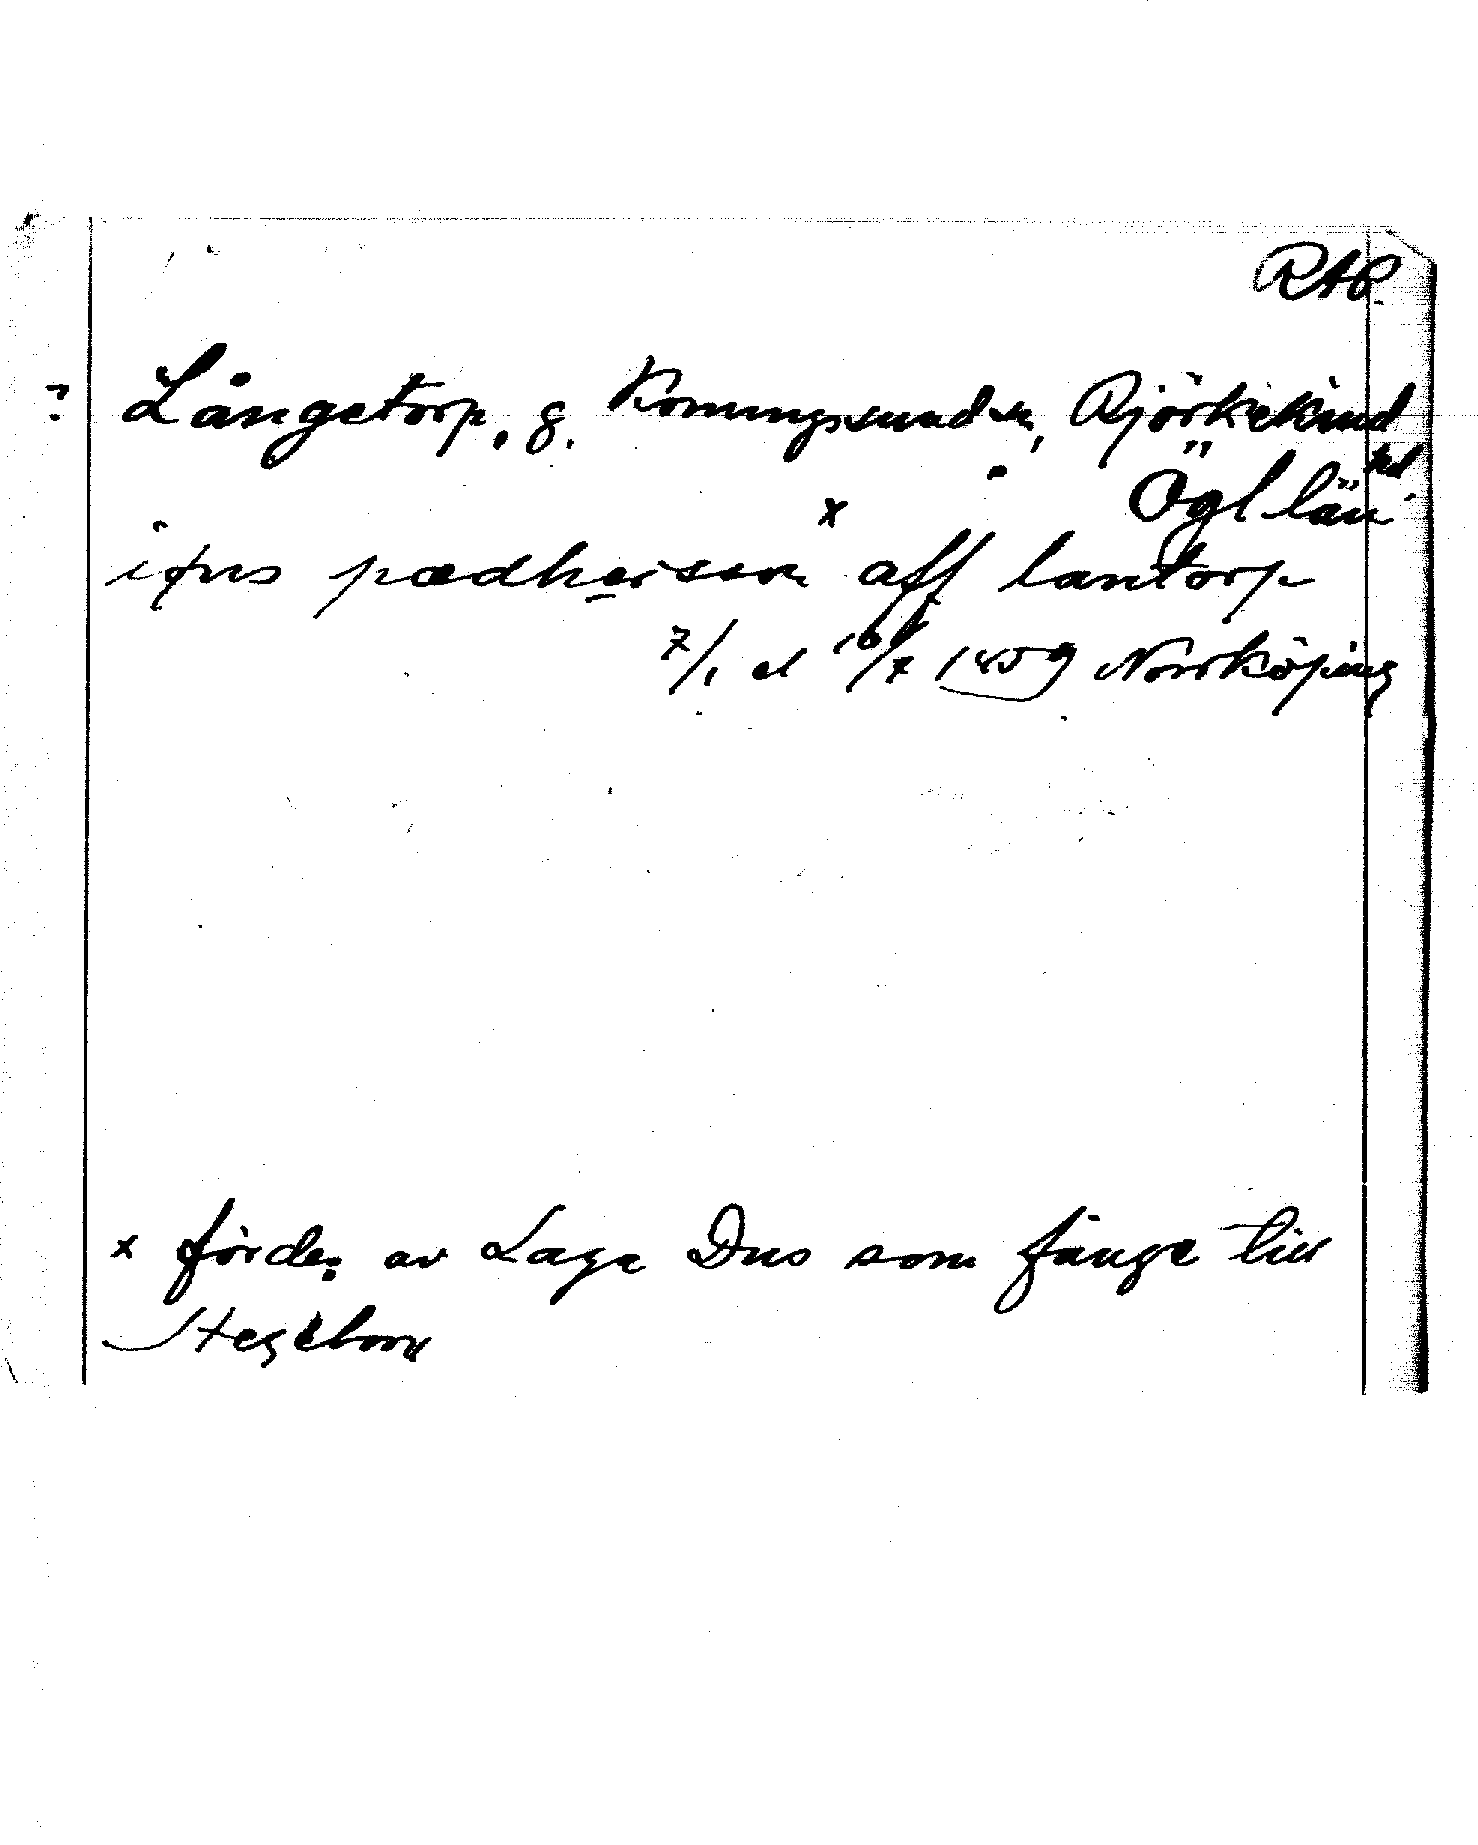 RAP
? Långetorp, g. Konungsunds sn, Björkekind
hd.
Ögl län
ions pædhersson x aff lantorp
7/1 el 10/7 1459 Norrköping
x fördes av Lage Dus som fånge till
Stegeborg